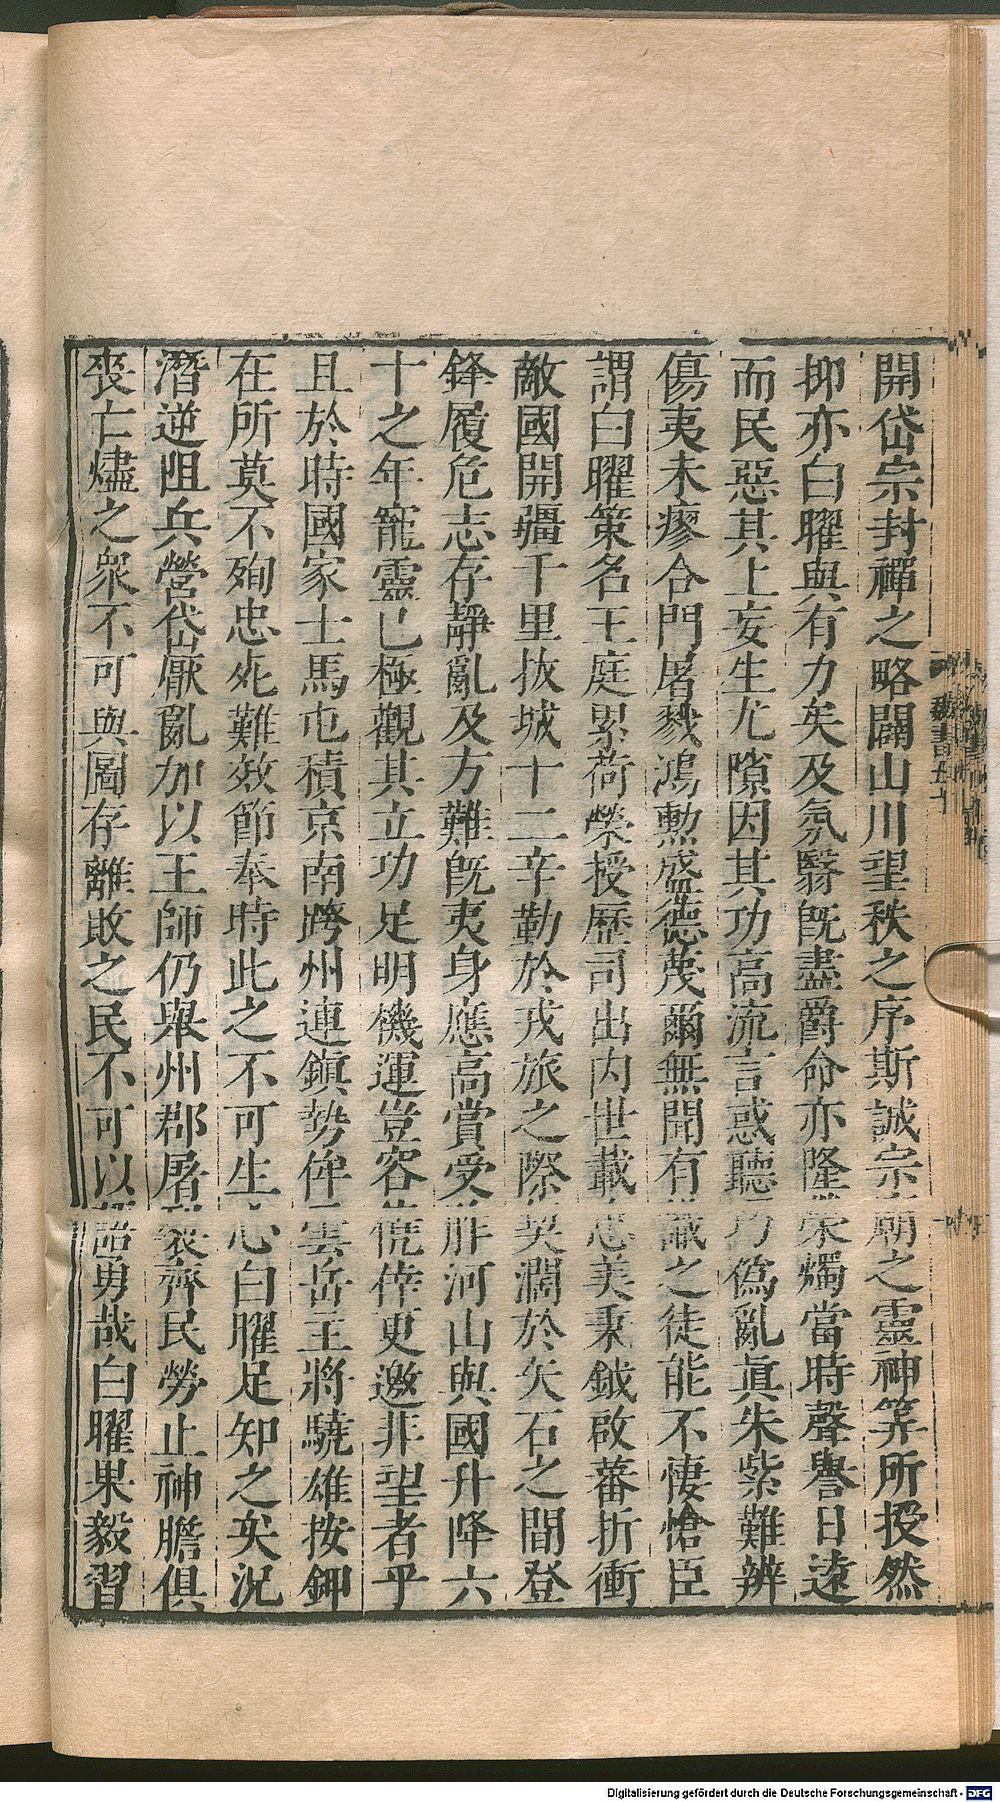 開岱宗封禪之略闢山川望秩之序斯誠宗朝之靈神筭所授然
抑亦白曜與有力矣及氛翳旣盡爵命亦隆榮燭當時聲譽日遠
而民惡其上妄生尤隙因其功高流言惑聽巧僞亂眞朱紫難辨
傷夷未瘳合門屠戮鴻勲盛德蔑爾無聞有識之徒能不悽愴臣
謂白曜策名王庭累荷榮授歷司出内世載忠美秉鉞啟蕃折衝
敵國開疆千里拔城十二辛勤於戎旅之際契濶於矢石之間登
鋒履危志存靜亂及方難旣夷身應高賞受胙河山與國升降六
十之年寵靈已極觀其立功足明機運豈容僥倖更邀非望者乎
且於時國家士馬屯積京南跨州連鎮勢侔雲岳主將驍雄按鉀
在所莫不殉忠死難效節奉時此之不可生心白曜足知之矣況
潛逆阻兵營岱厭亂加以王師仍舉州郡屠裂齊民勞止神膽俱
喪亡燼之衆不可與圖存離敗之民不可以語勇哉白曜果毅習
魏書五十
Digitalisierung gefördert durch die Deutsche Forschungsgemeinschaft - DFG